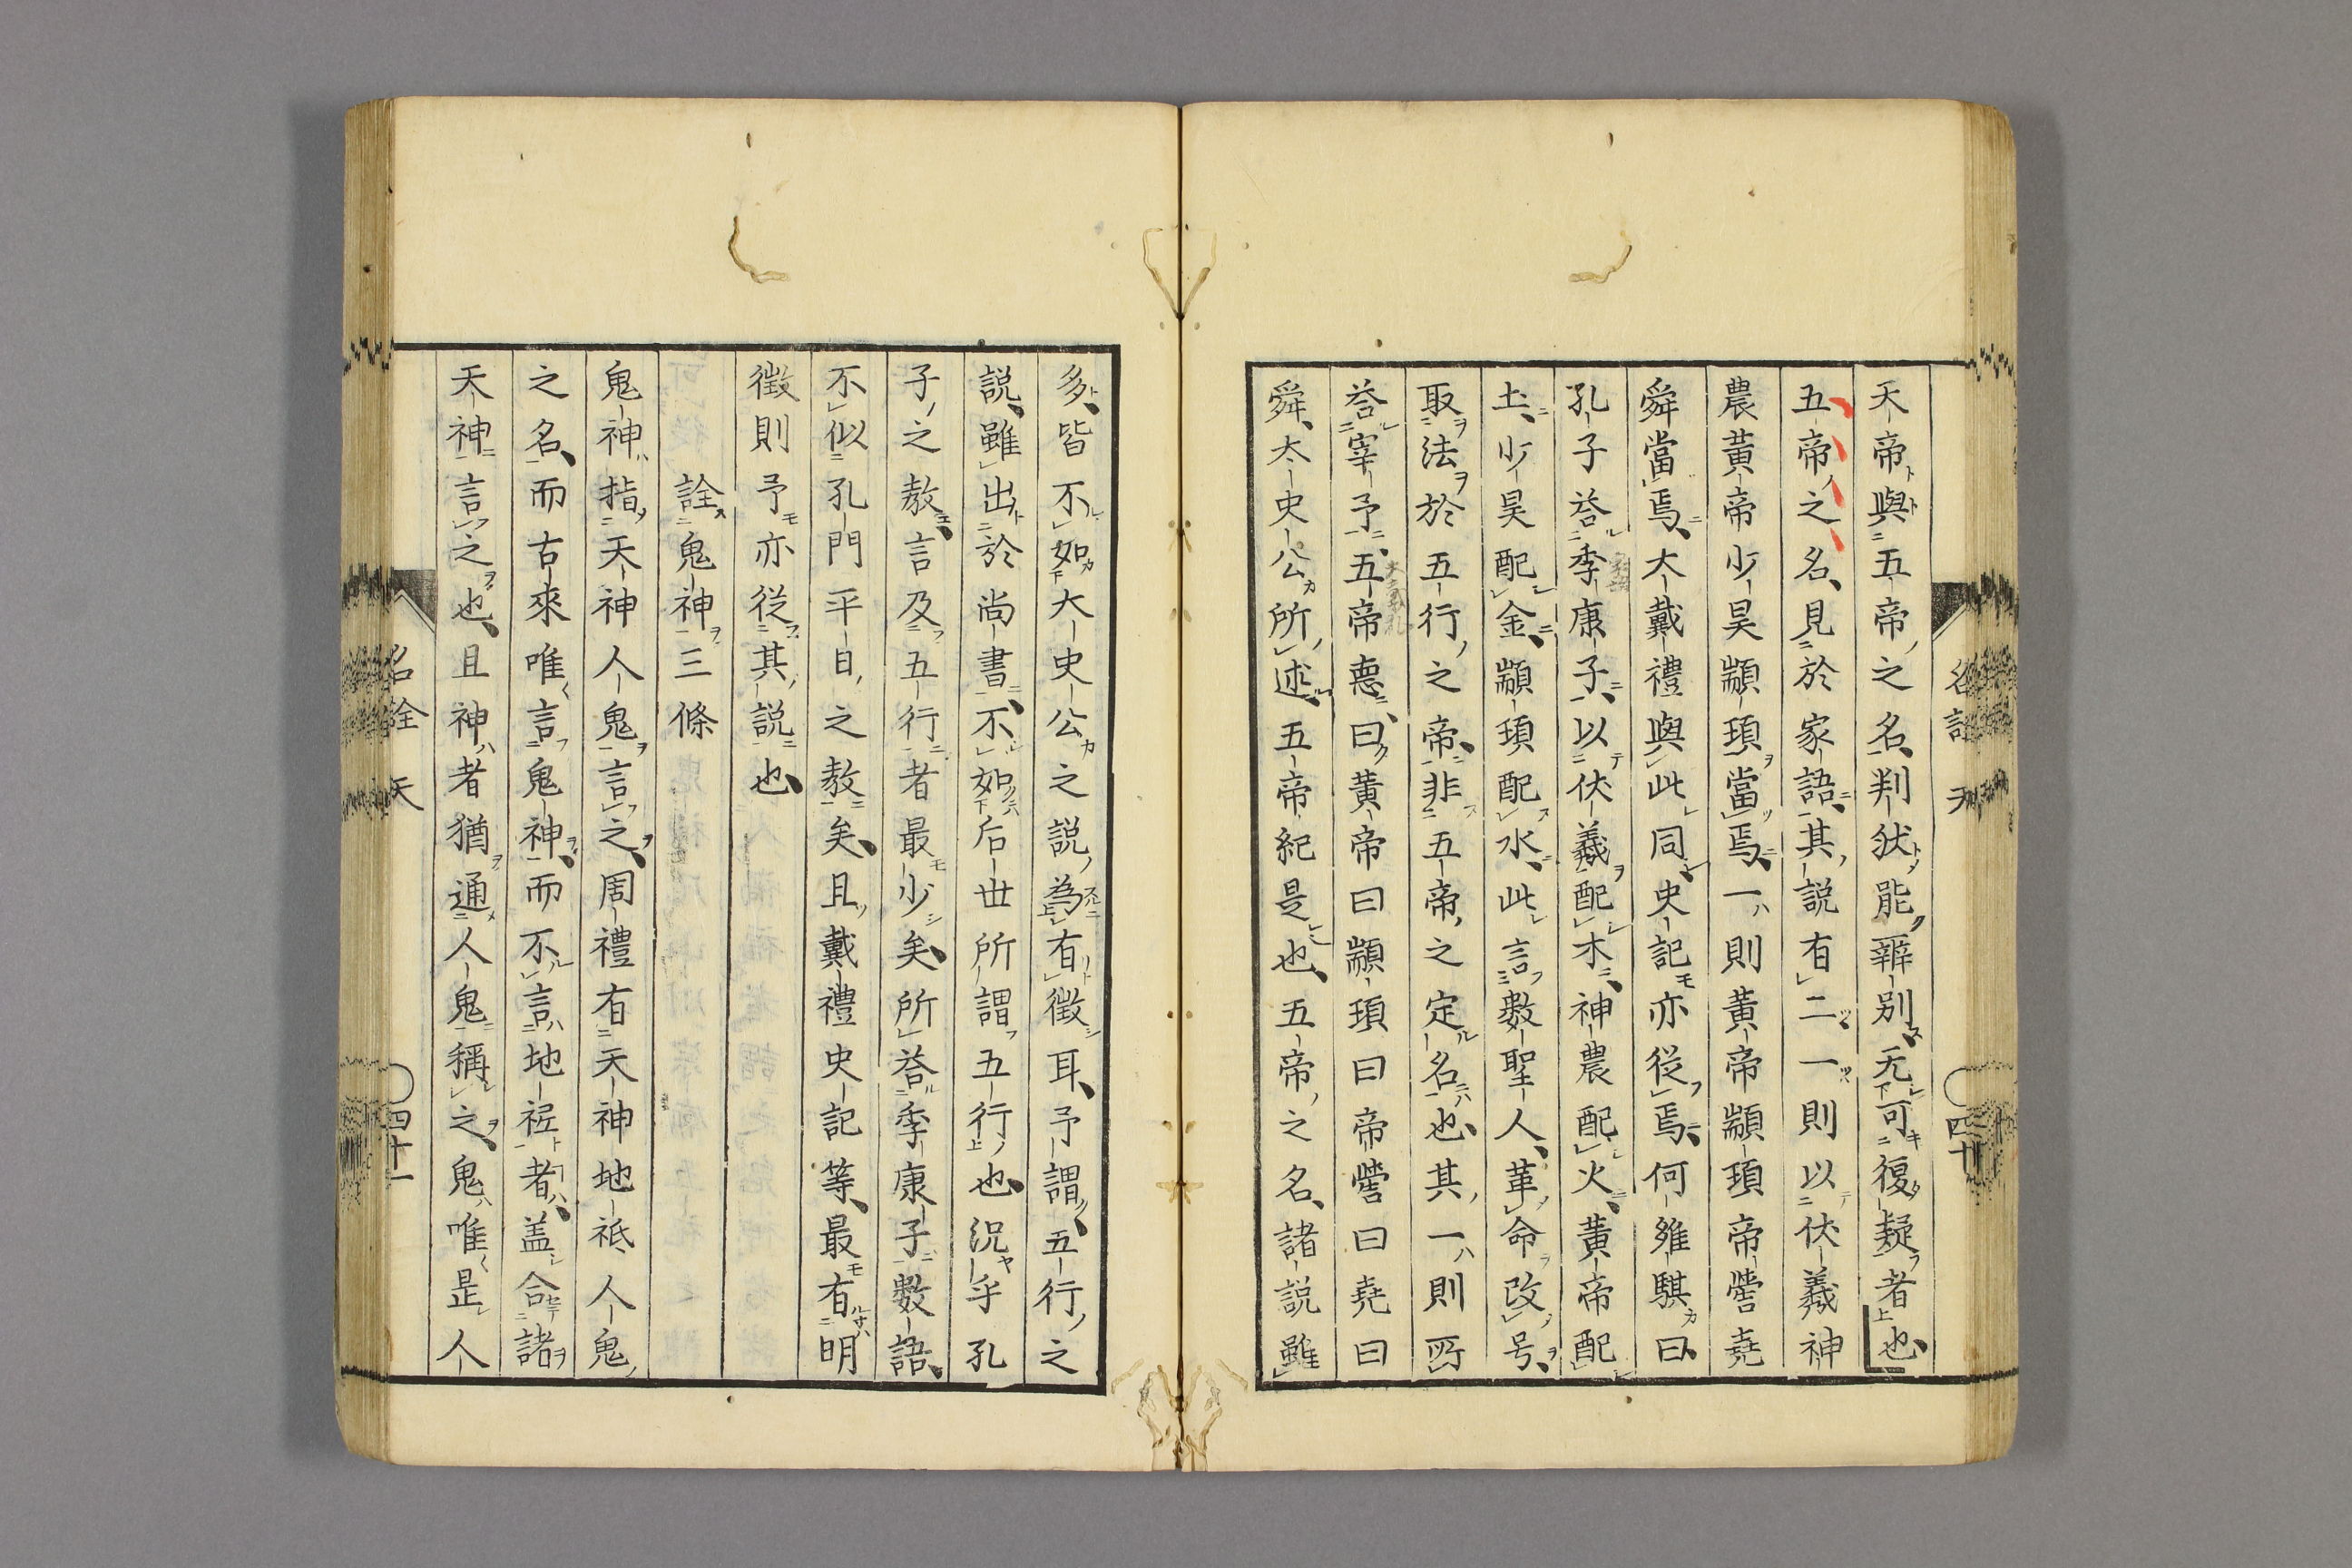 名詮 天 四十
天帝與五帝之名判狀能辨別无可復疑者也
五帝之名見於家語其説有二一則以伏羲神
農黃帝少昊顓頊當焉一則黃帝顓頊帝嚳堯
舜當焉大戴禮與此同史記亦從焉何雒騏曰
孔子荅季康子以伏羲配木神農配火黃帝配
土少昊配金顓頊配水此言數聖人革命改号
取法於五行之帝非五帝之定名也其一則所
荅宰予五帝悳曰黃帝曰顓頊曰帝嚳曰堯曰
舜太史公所述五帝紀是也五帝之名諸説雖
多皆不如大史公之説為有徵耳予謂五行之
説雖出於尚書不如后世所謂五行也況乎孔
子之敎言及五行者最少矣所荅季康子數語
不似孔門平日之敎矣且戴禮史記等最有明
徵則予亦從其説也
詮鬼神三條
鬼神指天神人鬼言之周禮有天神地祇人鬼
之名而古來唯言鬼神而不言地祇者盖合諸
天神言之也且神者猶通人鬼稱之鬼唯是人
名詮 天 四十一